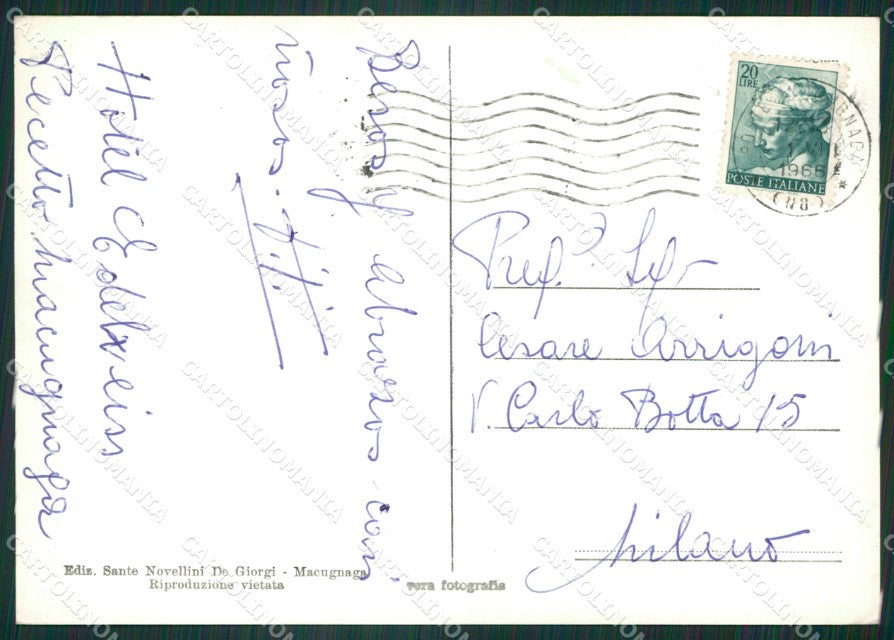 Besos y abrazos con
Hotel Edelweiss
Pecetto Macugnaga
20
LIRE
POSTE ITALIANE
1965
Cesare Arrigoni
V. Carlo Botta 15
Milano
Ediz. Sante Novellini De Giorgi - Macugnaga
Riproduzione vietata
vera fotografia
CARTOLINOMANIA